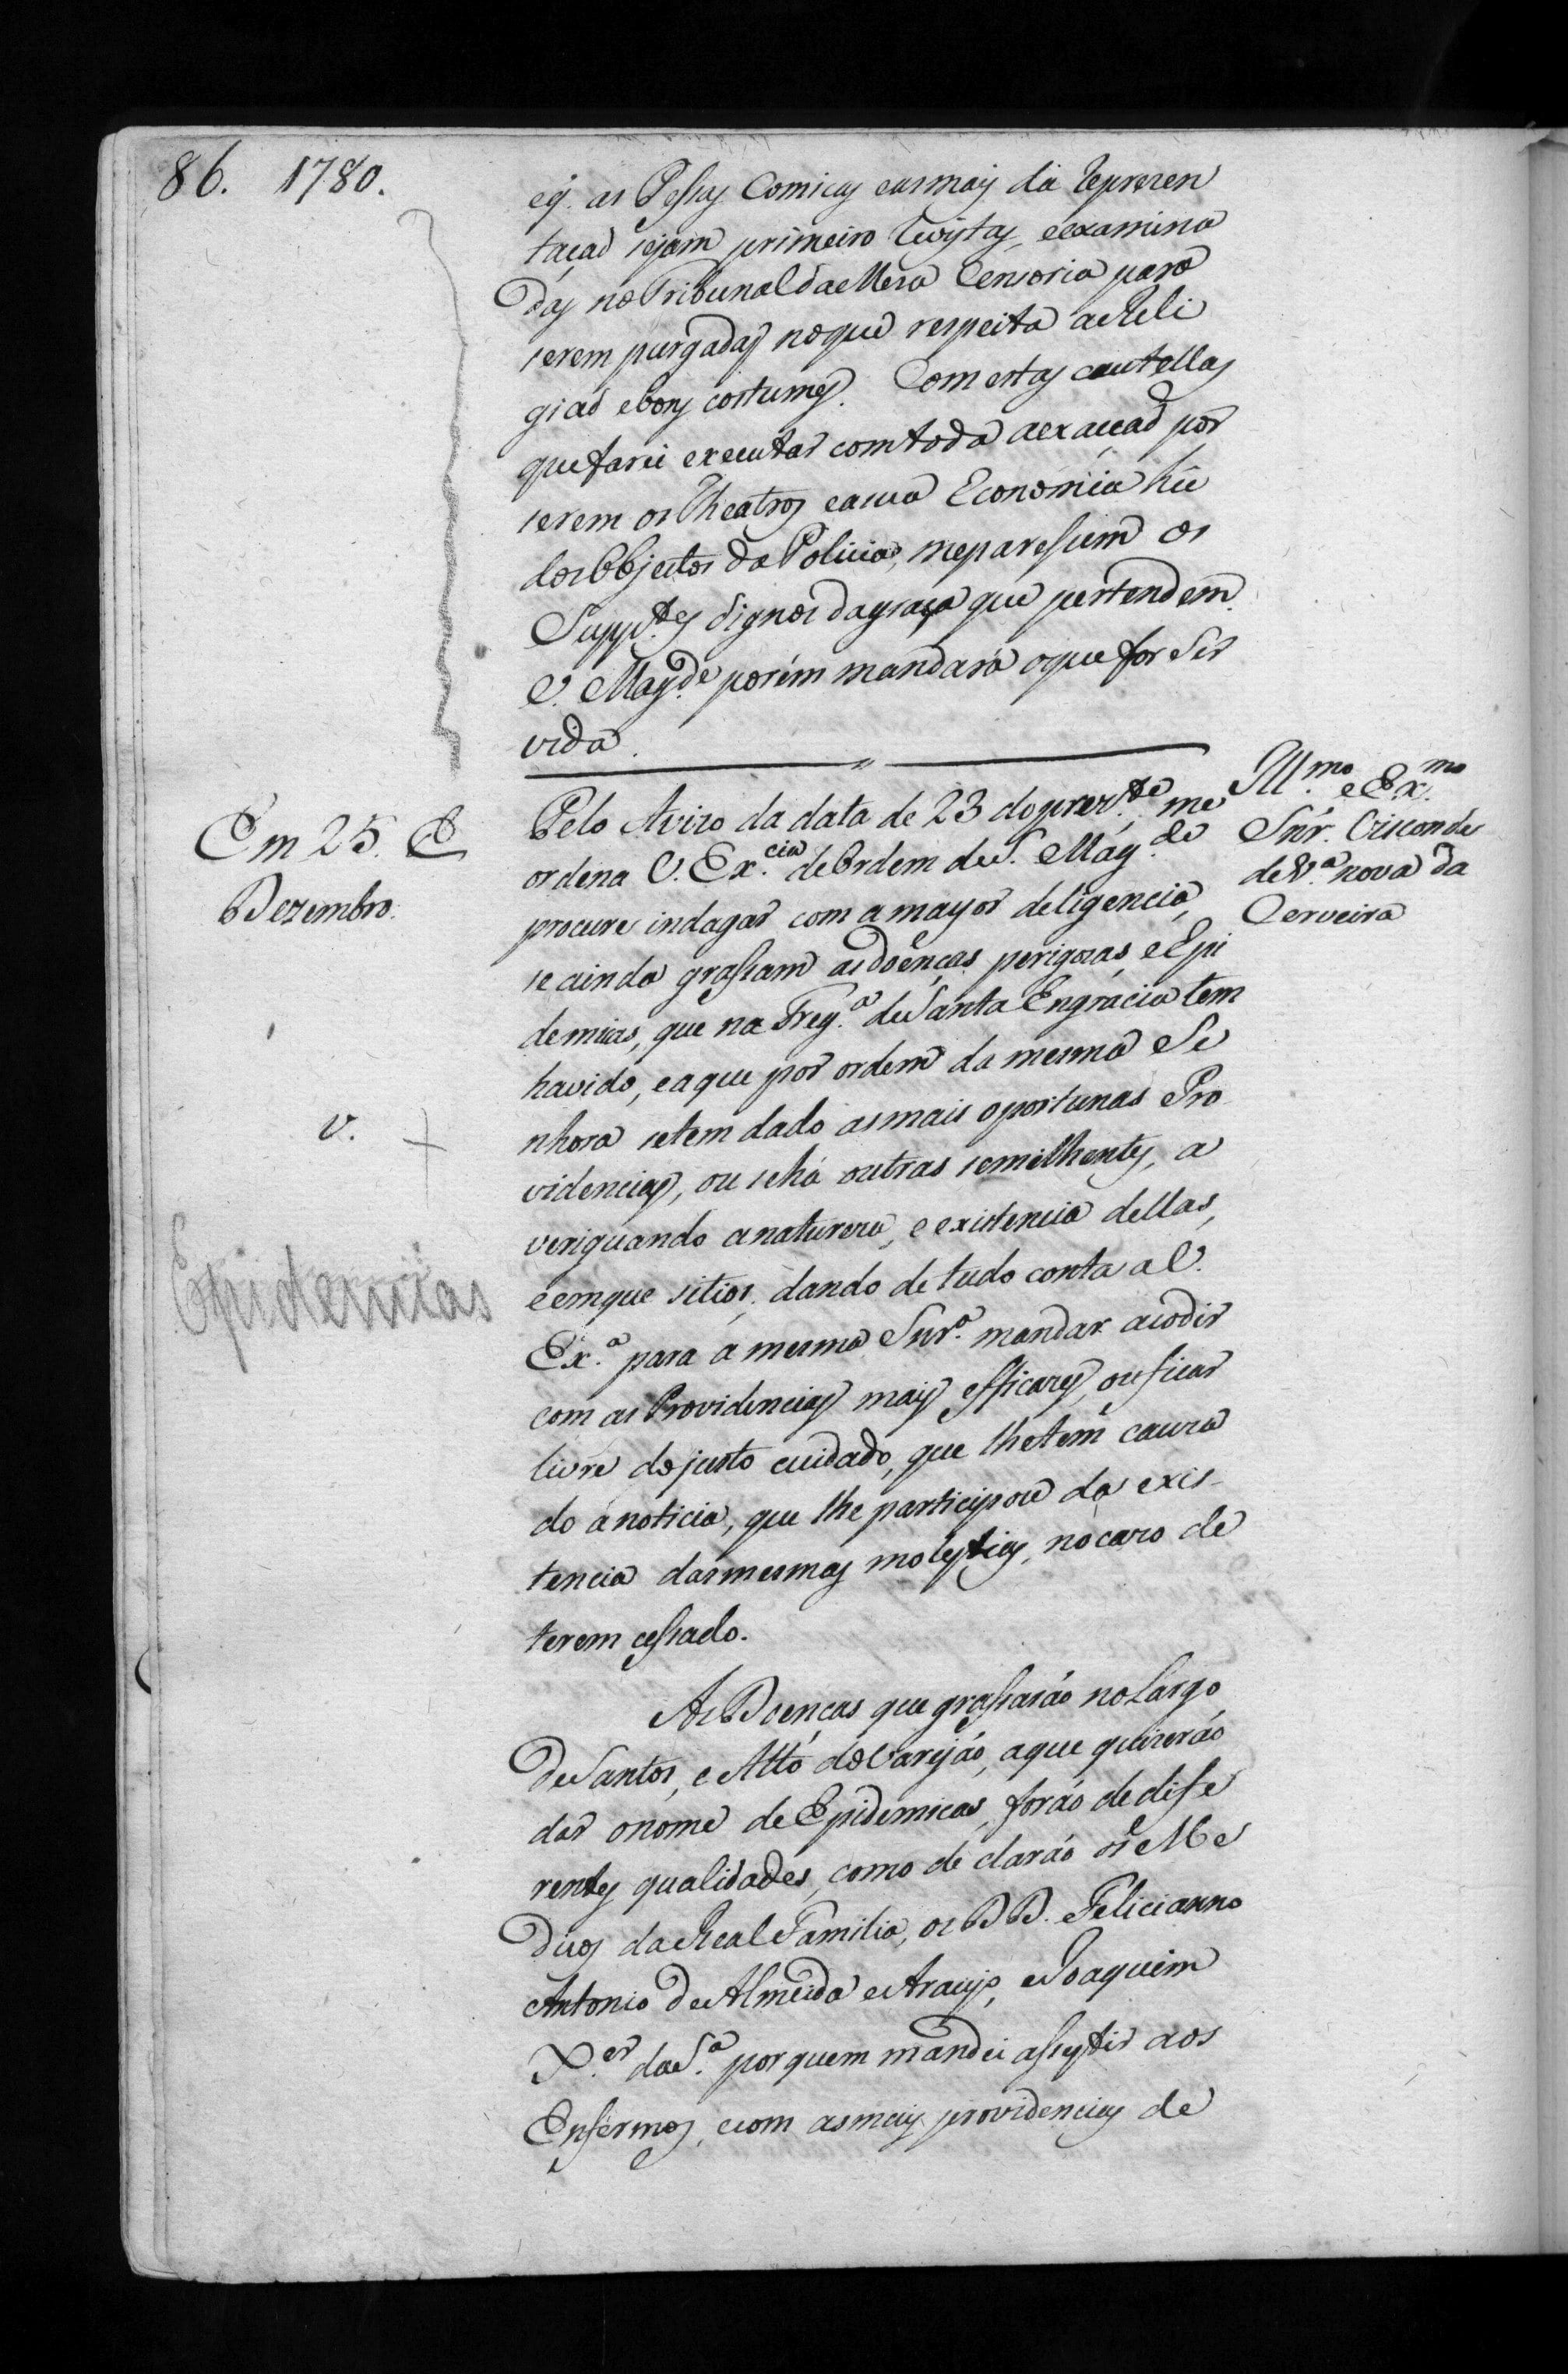 86. 1780.
eq̃. as Pessas Comicas easmais da Reprezen
taçaõ sejam primeiro Revistas, eexamina
das no Tribunal da Meza Censoria para
serem purgadas noque respeita a Reli
giaõ ebons costumes. Com estas cautellas
quefarei executar comtoda aexacçaõ por
serem os Theatros easua Economia hũ
dos Objectos da Policia, meparessem os
Supp.tes dignos dagraça que pertendem.
V. Mag.de porém mandará oque for Ser
vida.
Em 25. E
Dezembro.
Ill.mo e Ex.mo
Snr. Visconde
de V.a nova da
Cerveira
Pelo Avizo da data de 23 doprez.te, me
ordena V. Ex.cia deOrdem de S. Mag.de
procure indagar com amayor deligencia,
se ainda grassam asdoenças perigozas, e Epi
demicas, que na Freg.a de Santa Engracia tem
havido, eaque por ordem da mesma Se
nhora setem dado asmais oportunas Pro
videncias, ou sehá outras semilhentes, a
veriguando anatureza, e existencia dellas,
eemque sitios, dando de tudo conta a V.
Ex.a para a mesma Snr.a mandar acodir
com as Providencias mais efficazes, ouficar
livre dojusto cuidado, que lhetem cauza
do anoticia, que lhe participou da exis-
tencia dasmesmas molestias, nocazo de
terem cessado.
v.
Epidemias
As Doenças que grassaráo no Largo
de Santos, e Alto do Varejáo, aque quizeráo
dar onome de Epidemicas, foráo de dife
rentes qualidades, como declaráo os Me
dicos da Real Familia, os DD. Felicianno
Antonio de Almeida e Araujo, e Joaquim
X.er da S.a porquem mandei assestir aos
Enfermos, ecom asmais providencias de